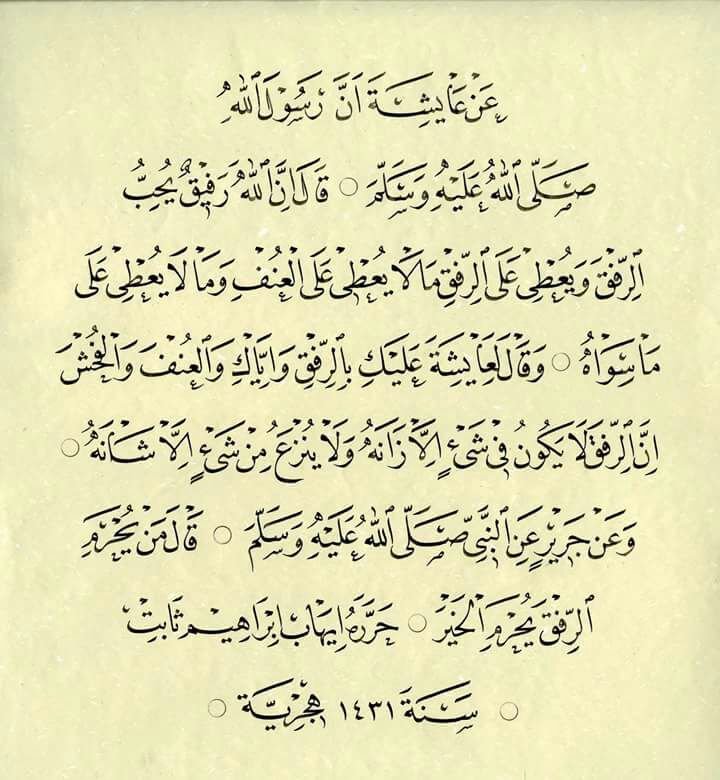 عَنْ عَايِشَةَ اَنَّ رَسُولَ اللّٰهِ
صَلَّى اللّٰهُ عَلَيْهِ وَسَلَّمَ ○ قَالَ اِنَّ اللّٰهَ رَفِيْقٌ يُحِبُّ
الرِّفْقَ وَيُعْطِىْ عَلَى الرِّفْقِ مَا لَا يُعْطِىْ عَلَى الْعُنْفِ وَمَا لَا يُعْطِىْ عَلَى
مَا سِوَاهُ ○ وَقَالَ لِعَايِشَةَ عَلَيْكِ بِالرِّفْقِ وَاِيَّاكِ وَالْعُنْفَ وَالْفُحْشَ
اِنَّ الرِّفْقَ لَا يَكُونُ فِىْ شَىْءٍ اِلَّا زَانَهُ وَلَا يُنْزَعُ مِنْ شَىْءٍ اِلَّا شَانَهُ ○
وَعَنْ جَرِيْرٍ عَنِ النَّبِىِّ صَلَّى اللّٰهُ عَلَيْهِ وَسَلَّمَ ○ قَالَ مَنْ يُحْرَمِ
الرِّفْقَ يُحْرَمِ الْخَيْرَ ○ حَرَّرَهُ اِيهَاب اِبْرَاهِيْم ثَابِتْ
○ سَنَةَ ١٤٣١ هِجْرِيَّة ○